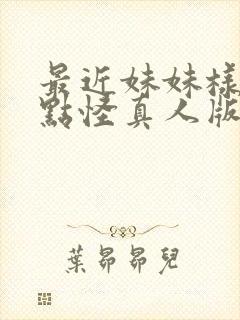 最近妹妹樣
點怪真人版
葉昴昴兒